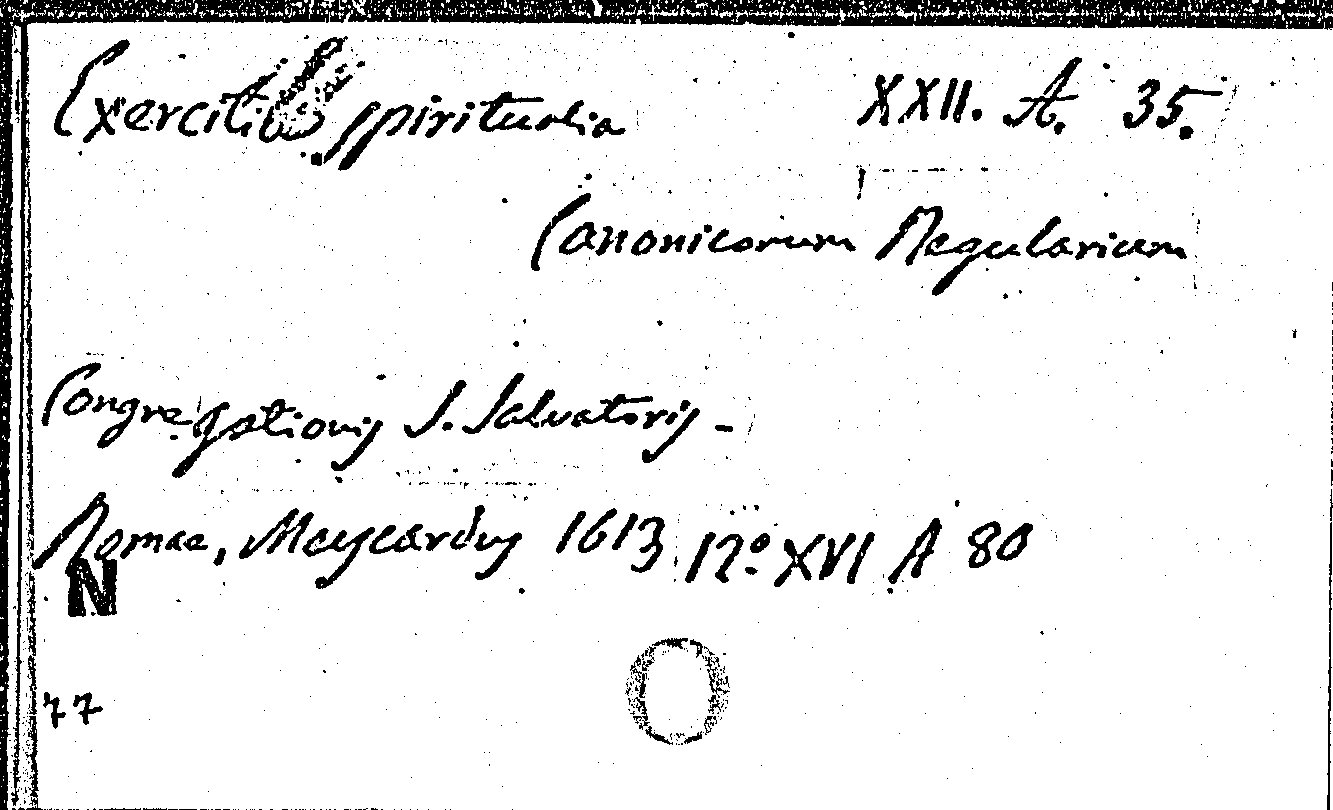 Exercitia spiritualia XXII. A. 35.
Canonicorum Regularium
Congregationis S. Salvatoris -
Romae, Meycardus 1613 12° XVI A 80
N
77